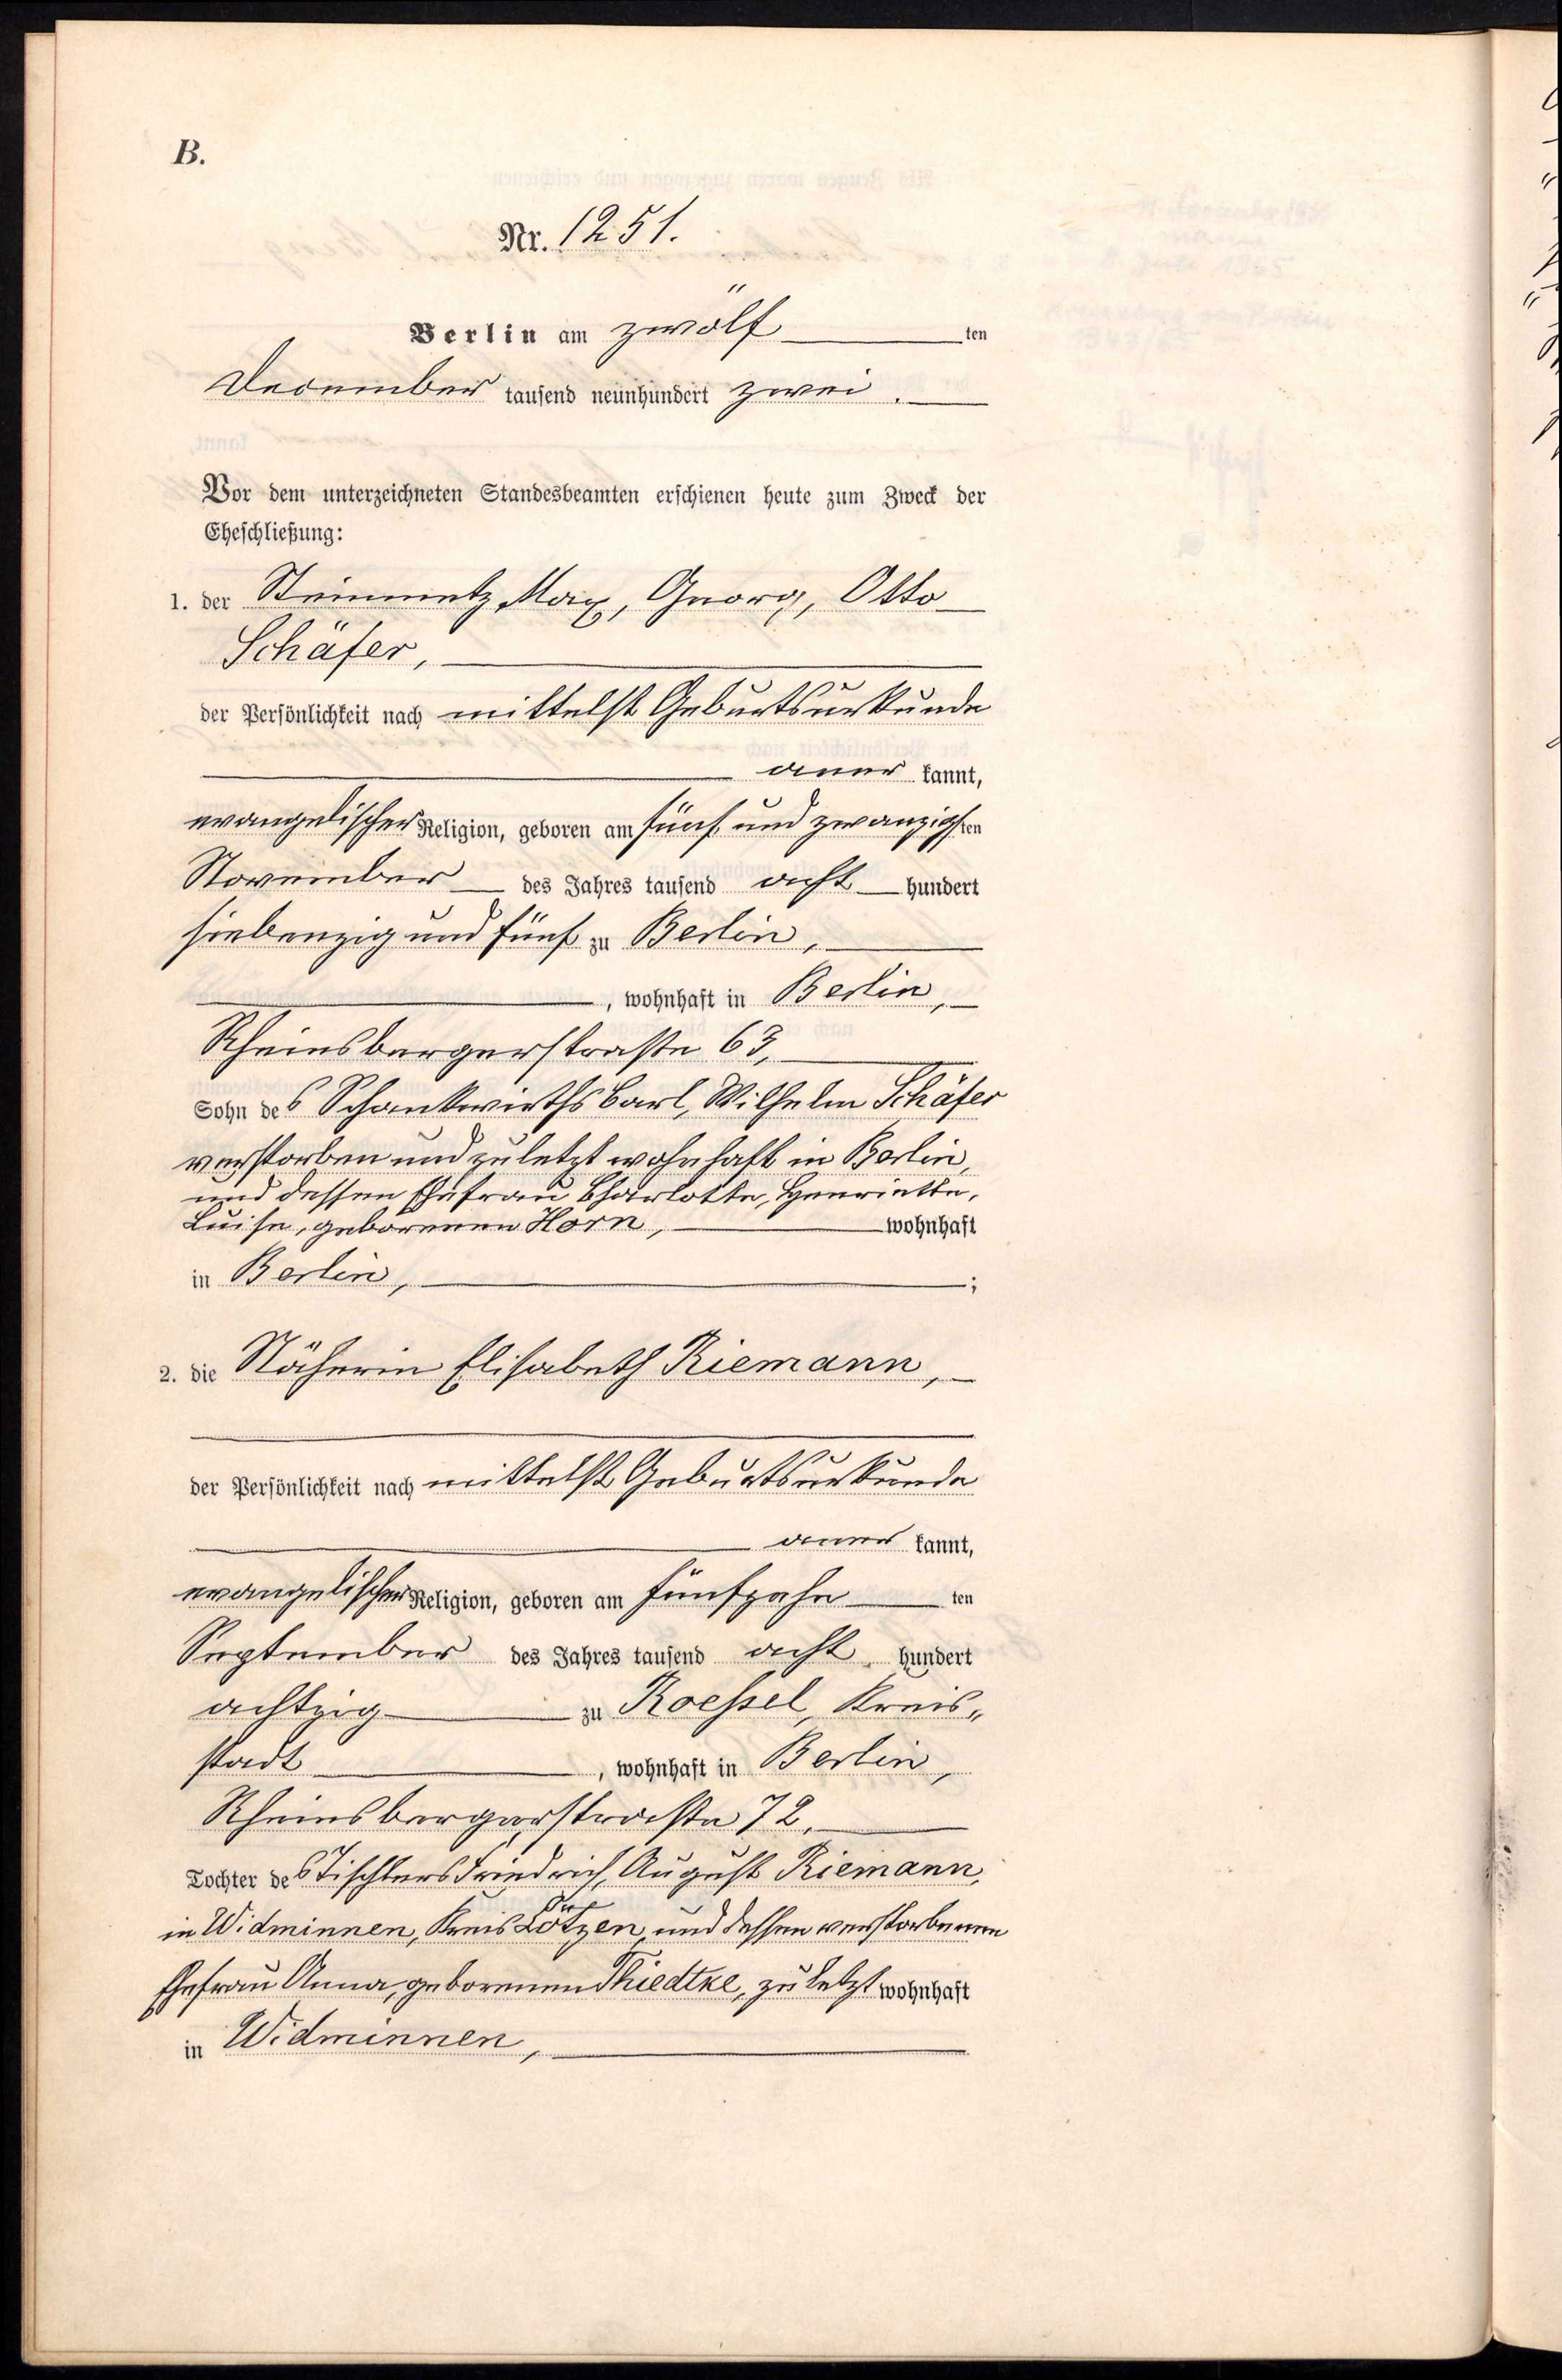 B.
Nr. 1251.
Berlin am zwölf ten
December tausend neunhundert zwei.
Vor dem unterzeichneten Standesbeamten erschienen heute zum Zweck der
Eheschließung:
1. der Steinmetz Max, Georg, Otto
Schäfer,
der Persönlichkeit nach mittelst Geburtsurkunde
aner kannt,
evangelischer Religion, geboren am fünf und zwanzigsten
November des Jahres tausend acht hundert
siebenzig und fünf zu Berlin,
, wohnhaft in Berlin,
Rheinsbergerstraße 63,
Sohn des Schankwirths Carl, Wilhelm Schäfer
verstorben und zuletzt wohnhaft in Berlin,
und dessen Ehefrau Charlotte, Henriette,
Luise, geborenen Horn, wohnhaft
in Berlin, ;
2. die Näherin Elisabeth Riemann,
der Persönlichkeit nach mittelst Geburtsurkunde
aner kannt,
evangelischer Religion, geboren am fünfzehn ten
September des Jahres tausend acht hundert
achtzig zu Roessel, Kreis„
stadt , wohnhaft in Berlin,
Rheinsbergerstraße 72,
Tochter des Tischlers Friedrich, August Riemann,
in Widminnen, Kreis Lötzen, und dessen verstorbenen
Ehefrau Anna, geborenen Thiedtke, zuletzt wohnhaft
in Widminnen,